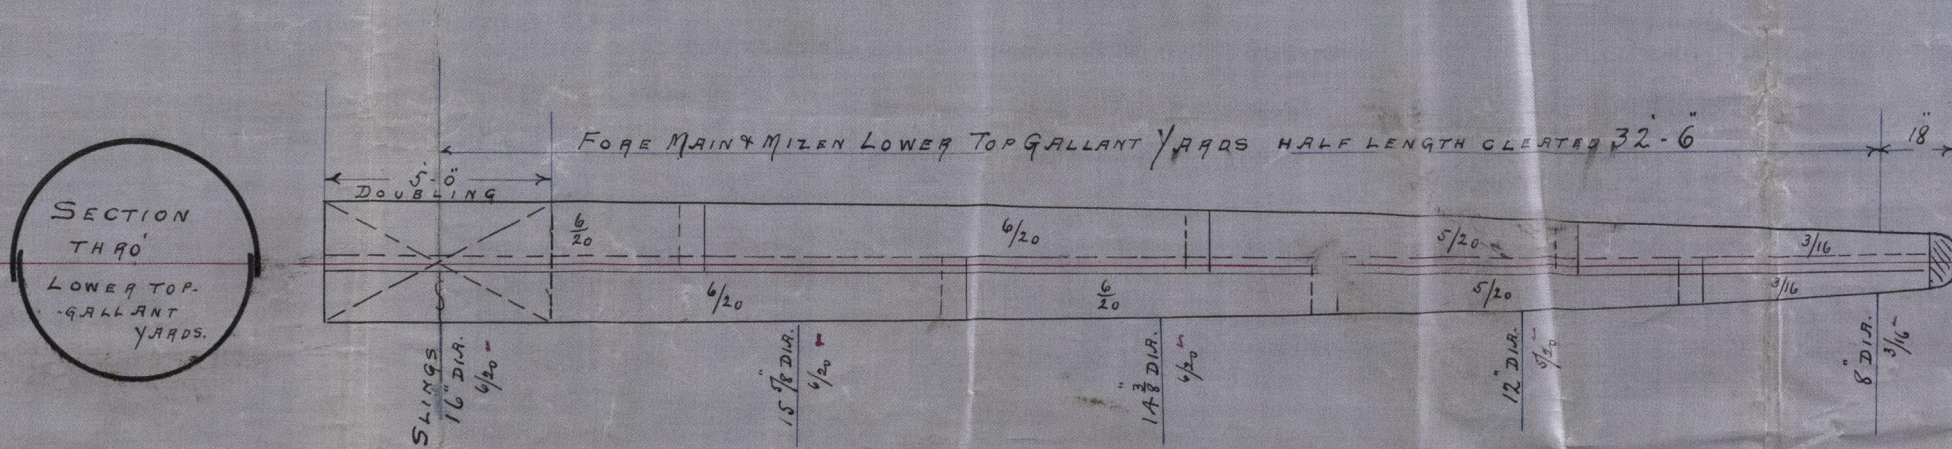 SECTION
THRO'
LOWER TOP-
-GALLANT
YARDS.
FORE MAIN & MIZEN LOWER TOP GALLANT YARDS HALF LENGTH CLEATED 32'-6"
18"
5'-0"
DOUBLING
6/20
6/20
5/20
3/16
6/20
6/20
5/20
3/16
SLINGS
16" DIA.
6/20
15 5/8" DIA.
6/20
14 3/8" DIA.
6/20
12" DIA.
5/20
8" DIA.
3/16